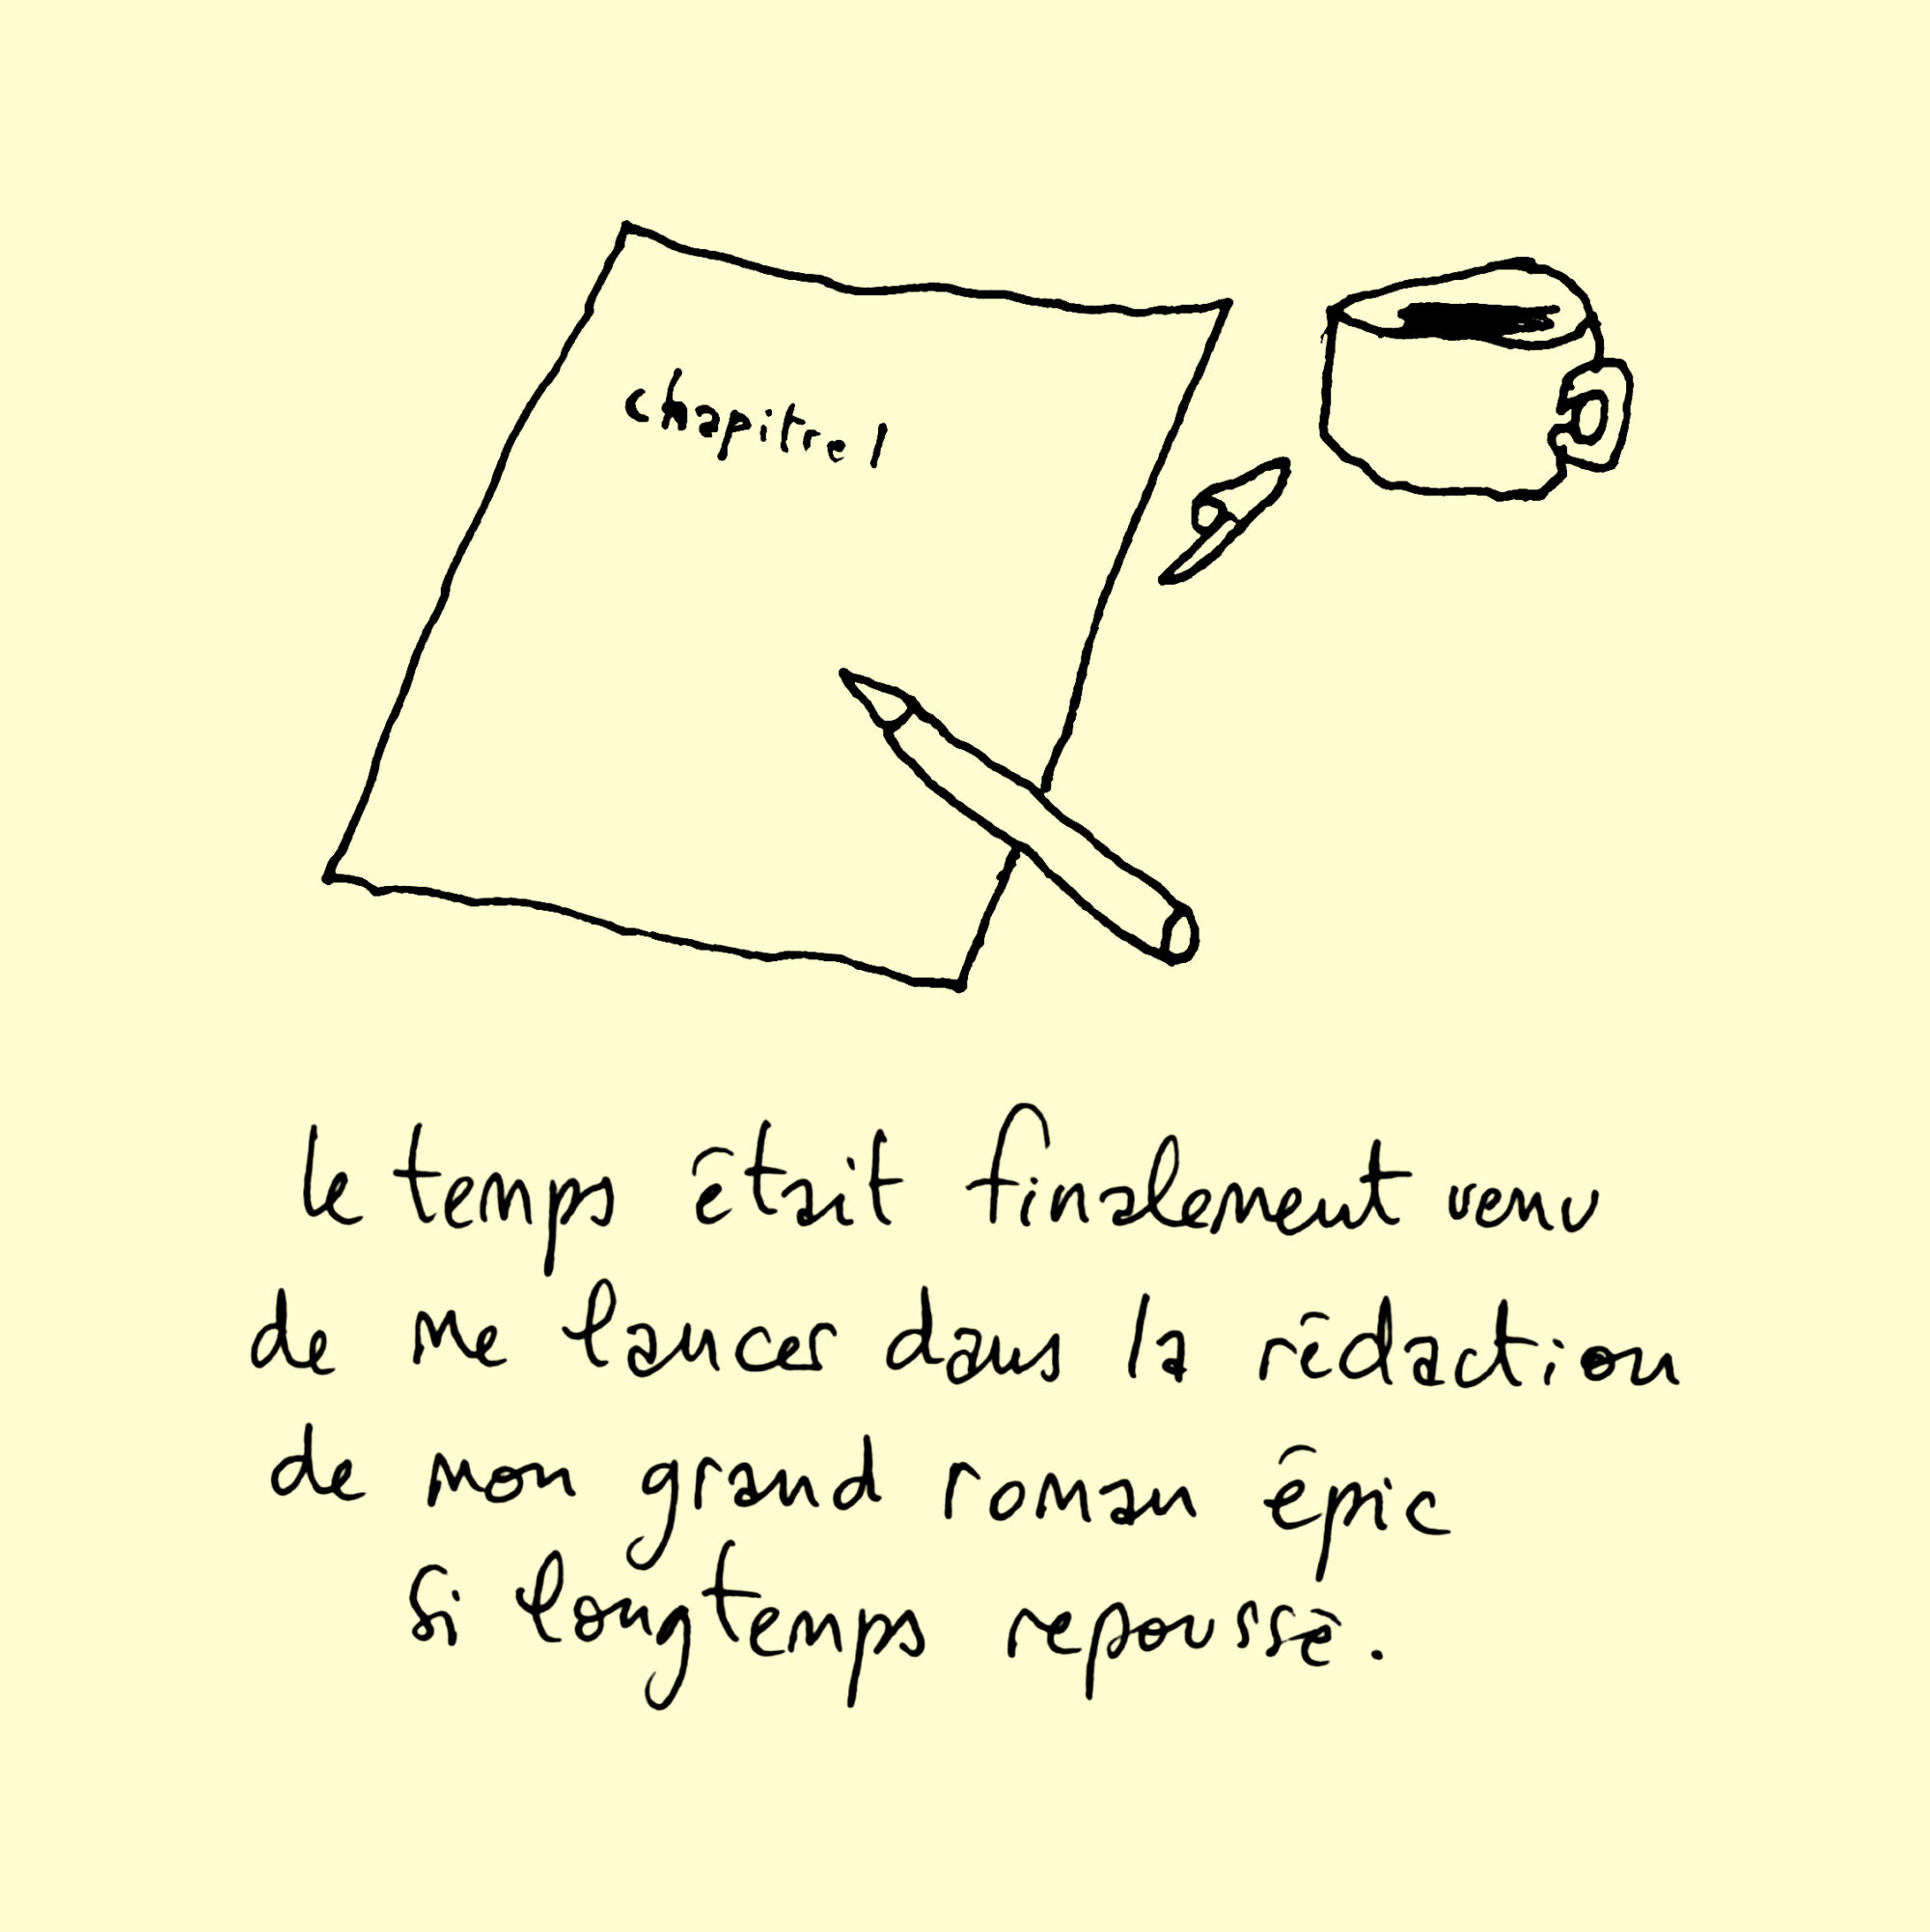 chapitre 1
le temps était finalement venu
de me lancer dans la rédaction
de mon grand roman épic
si longtemps repoussé.